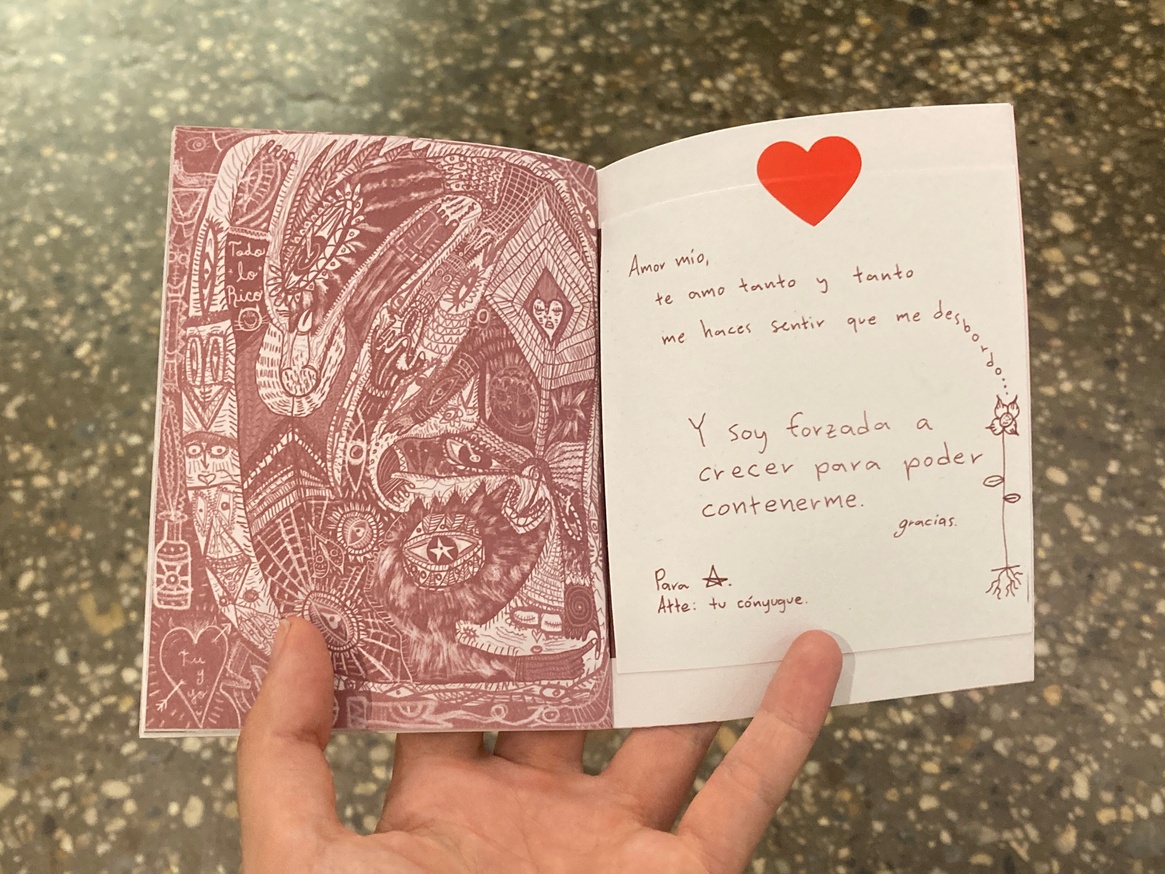 Todo
lo
Rico
tu
y
yo
Amor mío,
te amo tanto y tanto
me haces sentir que me desbordo...
Y soy forzada a
crecer para poder
contenerme.
gracias.
Para ☆.
Atte: tu cónyugue.